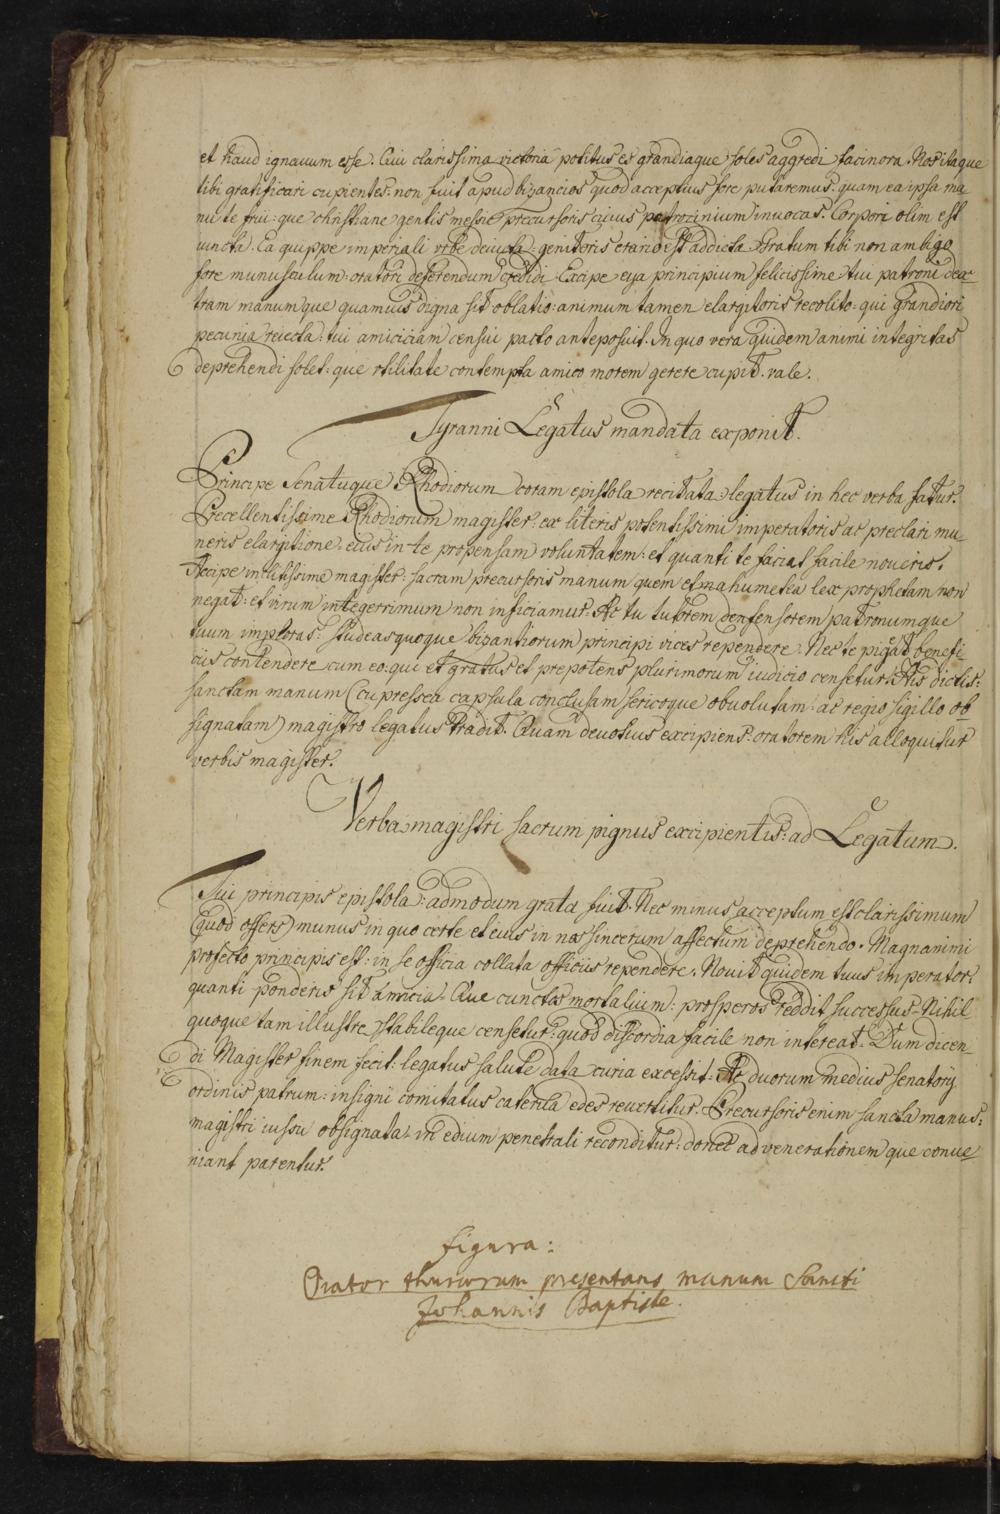 et haud ignauum esse. Qui clarissima victoria potitus es grandiaque soles aggredi facinora. Nos itaque
tibi gratificari cupientes: non fuit apud bizancios quod acceptius fore putaremus: quam ea ipsa ma
nu te frui: que christiane gentis messie precursoris cuius patrocinium inuocas. Corpori olim est
iuncta. Ea quippe imperiali vrbe deuicta: genitoris erario est addicta. Gratum tibi non ambigo
fore munusculum: oratori deferendum credidi. Excipe ergo principium felicissime tui patroni dex-
tram manumque quamuis digna sit oblatio: animum tamen elargitoris recolito: qui grandiori
pecunia reiecta: tui amiciciam censui pacto anteposuit. In quo vera quidem animi integritas
deprehendi solet: que vtilitate contempta amico morem gerere cupit. vale.
Tyranni Legatus mandata exponit.
Principe Senatuque Rhodiorum coram epistola recitata: legatus in hec verba fatur.
Precellentissime Rhodiorum magister: ex literis potentissimi imperatoris ac preclari mu
neris elargitione. eius in te propensam voluntatem: et quanti te faciat facile noueris.
Accipe inclitissime magister: sacram precursoris manum quem et mahumetea lex prophetam non
negat: et virum integerrimum non inficiamur. Ac tu tutorem denfensorem patronumque
tuum imploras. Studeas quoque bizantiorum principi vices rependere. Nec te pigeat benefi
ciis contendere cum eo: qui et gratus et prepotens plurimorum iudicio censetur. His dictis:
sanctam manum (cupressea capsula conclusam sericoque obuolutam: ac regio sigillo ob-
signatam) magistro legatus tradit. Quam deuotius excipiens: oratorem his alloquitur
verbis magister.
Verba magistri sacrum pignus excipientis: ad Legatum.
Tui principis epistola: admodum grata fuit. Nec minus acceptum est clarissimum
(quod offers) munus in quo certe et eius in nos sincerum affectum deprehendo. Magnanimi
profecto principis est: in se officia collata officiis rependere. Nouit quidem tuus imperator:
quanti ponderis sit amicia. Que cunctos mortalium: prosperos reddit successus. Nihil
quoque tam illustre stabileque censetur: quod discordia facile non intereat. Dum dicen-
di Magister finem fecit: legatus salute data curia excessit. Ac duorum medius senatorij
ordinis patrum: insigni comitatus caterua edes reuertitur. Precursoris enim sancta manus:
magistri iussu obsignata in edium penetrali reconditur: donec ad venerationem que conue-
niant parentur.
figura:
Orator thurcorum presentans manum Sancti
Johannis Baptiste.